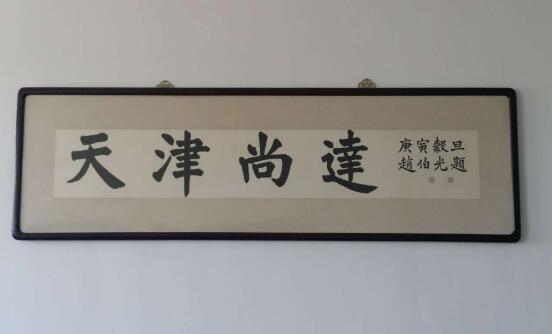 天津尚達
庚寅穀旦
趙伯光題